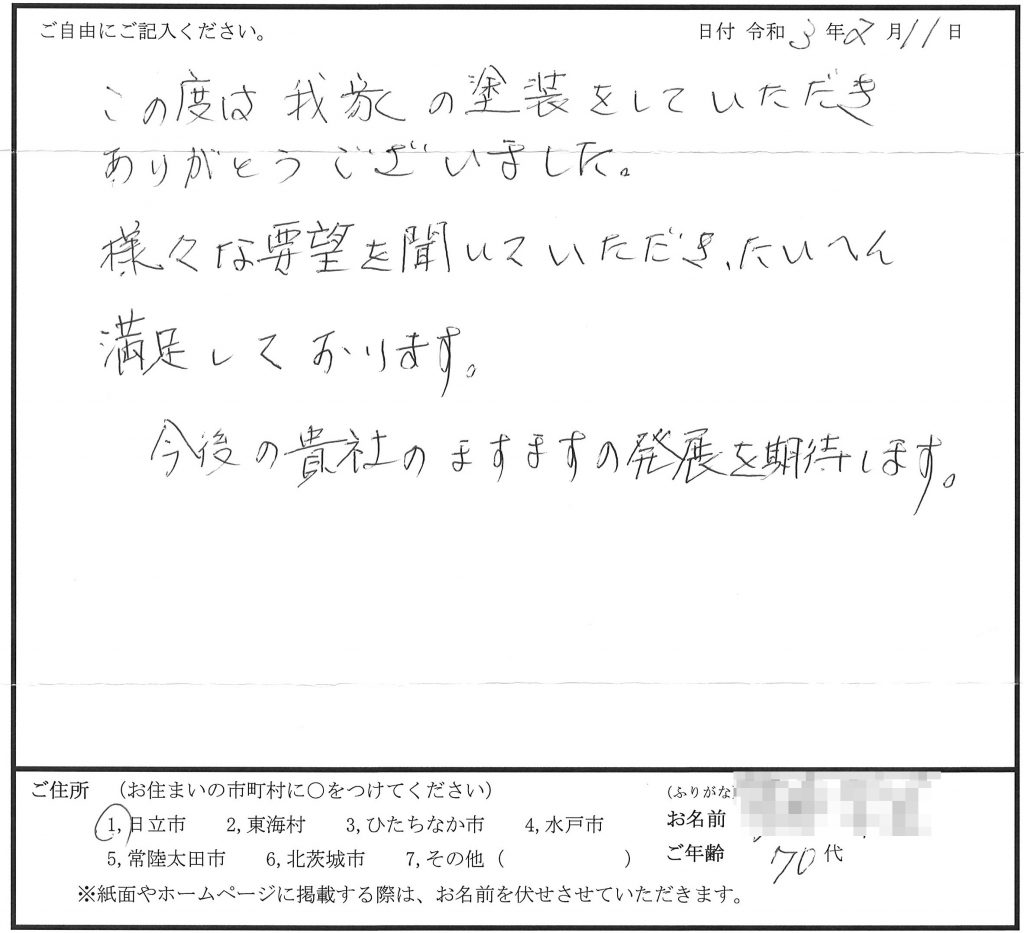 ご自由にご記入ください。 日付 令和 3 年 2 月 11 日
この度は我家の塗装をしていただき
ありがとうございました。
様々な要望を聞いていただき、たいへん
満足しております。
今後の貴社のますますの発展を期待します。
ご住所 （お住まいの市町村に○をつけてください）
（ふりがな）
1,日立市 2,東海村 3,ひたちなか市 4,水戸市
お名前
5,常陸太田市 6,北茨城市 7,その他（ ）
ご年齢 70代
※紙面やホームページに掲載する際は、お名前を伏せさせていただきます。